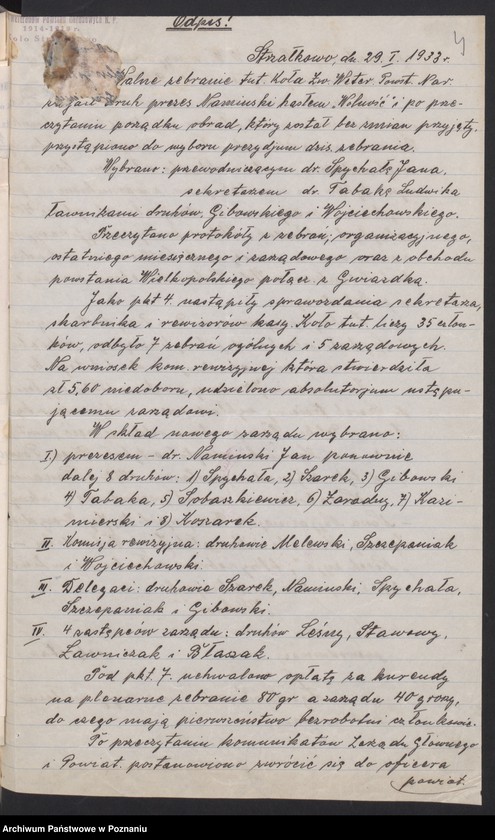 Odpis!
4
1914-1919 r.
Koło Strzałkowo
Strzałkowo, dn. 29. I. 1933 r.
Walne zebranie tut. Koła Zw. Weter. Powst. Nar.
zagaił druh prezes Namiński hasłem "Wolność" i po prze-
czytaniu porządku obrad, który został bez zmian przyjęty,
przystąpiono do wyboru prezydjum dzis. zebrania.
Wybrano: przewodniczącym dr. Spychałę Jana,
sekretarzem dr. Tabakę Ludwika
ławnikami druhów. Gibowskiego i Wojciechowskiego.
Przeczytano protokóły z zebrań; organizacyjnego,
ostatniego miesięcznego i zarządowego oraz z obchodu
powstania Wielkopolskiego połącz. z Gwiazdką.
Jako pkt 4. nastąpiły sprawozdania sekretarza,
skarbnika i rewizorów kasy. Koło tut. liczy 35 człon-
ków, odbyło 7 zebrań ogólnych i 5 zarządowych.
Na wniosek kom. rewizyjnej która stwierdziła
zł 5,60 niedoboru, udzielono absolutorjum ustępu-
jącemu zarządowi.
W skład nowego zarządu wybrano:
I.) prezesem - dr. Namiński Jan ponownie
dalej 8 druhów: 1) Spychała, 2) Szarek, 3) Gibowski
4) Tabaka, 5) Sobaszkiewicz, 6) Zaradny, 7) Kazi-
mierski i 8) Koszarek.
II. Komisja rewizyjna: druhowie Melewski, Szczepaniak
i Wojciechowski.
III. Delegaci: druhowie Szarek, Namiński, Spychała,
Szczepaniak i Gibowski.
IV. 4 zastępców zarządu: druhów Leśny, Stawowy,
Ławniczak i Błaszak.
Pod pkt. 7. uchwalono opłatę za kurendy
na plenarne zebranie 80 gr a zarządu 40 groszy,
do czego mają pierwszeństwo bezrobotni członkowie.
Po przeczytaniu komunikatów Zarządu Głównego
i Powiat. postanowiono zwrócić się do oficera
powiat.
Archiwum Państwowe w Poznaniu